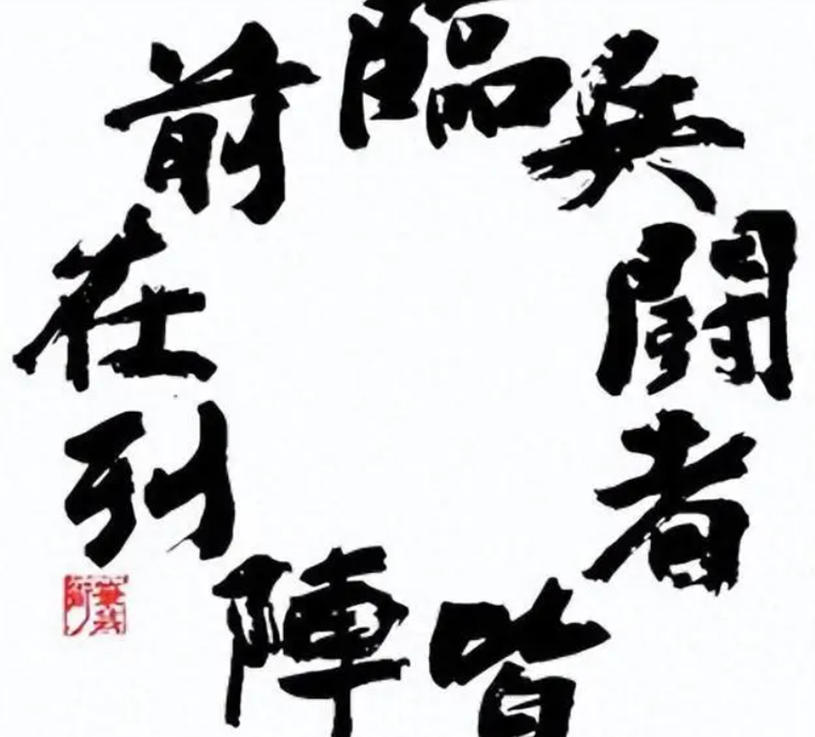 臨兵鬪者皆陣列在前